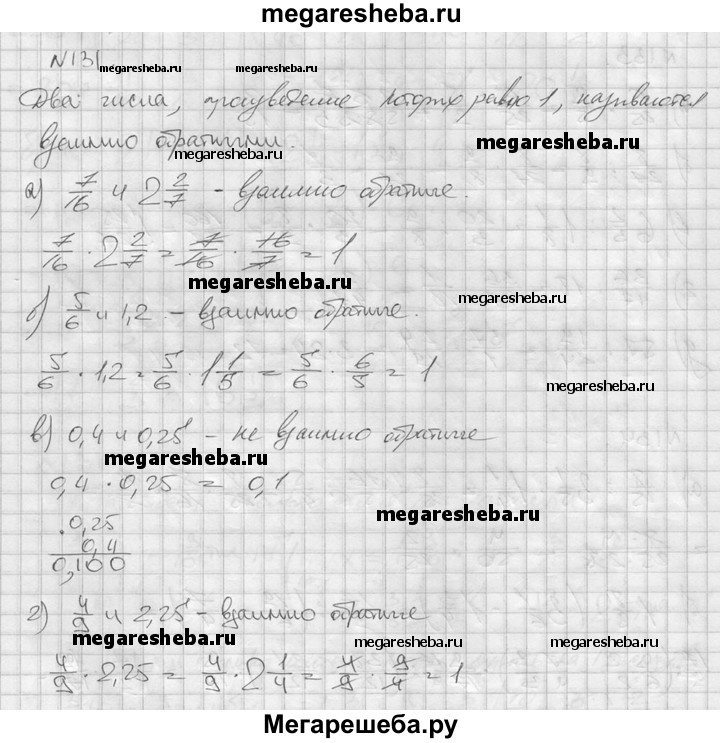 megaresheba.ru
N131
megaresheba.ru megaresheba.ru
Два числа, произведение которых равно 1, называются
взаимно обратными.
megaresheba.ru megaresheba.ru
а) 7/16 и 2 2/7 - взаимно обратные.
7/16 · 2 2/7 = 7/16 · 16/7 = 1
megaresheba.ru megaresheba.ru
б) 5/6 и 1,2 - взаимно обратные.
5/6 · 1,2 = 5/6 · 1 1/5 = 5/6 · 6/5 = 1
megaresheba.ru
в) 0,4 и 0,25 - не взаимно обратные
megaresheba.ru
0,4 · 0,25 = 0,1
megaresheba.ru
· 0,25
0,4
0,100
г) 4/9 и 2,25 - взаимно обратные
megaresheba.ru megaresheba.ru
4/9 · 2,25 = 4/9 · 2 1/4 = 4/9 · 9/4 = 1
megaresheba.ru megaresheba.ru
Мегарешеба.ру